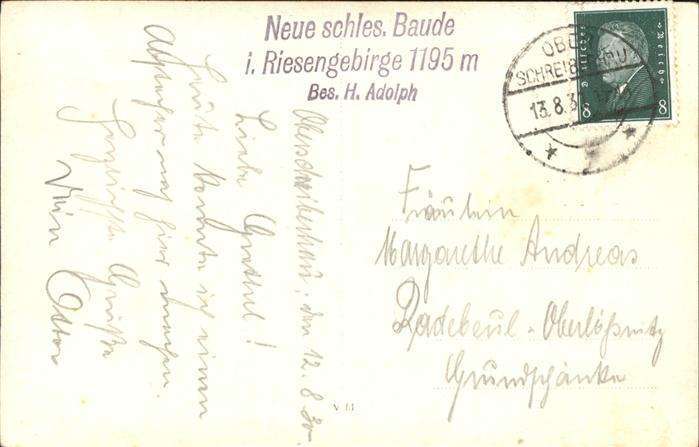 Neue schles. Baude
i. Riesengebirge 1195 m
Bes. H. Adolph
OBER
SCHREIBERHAU
13.8.3
Deutsches Reich
8 8
Oberschreiberhau, den 12.8.30.
Liebe Gretel!
Heute konnte ich einen
Abstecher nach hier machen.
Herzlichste Grüße
Dein Ottor
Fräulein
Margarethe Andreas
Radebeul-Oberlößnitz
Grundschänke